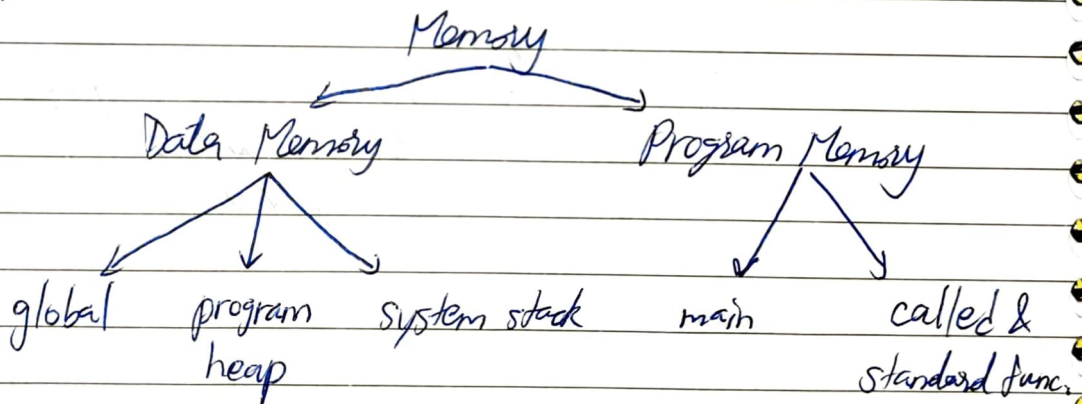 Memory
Data Memory
Program Memory
global
program
heap
system stack
main
called &
standard func.